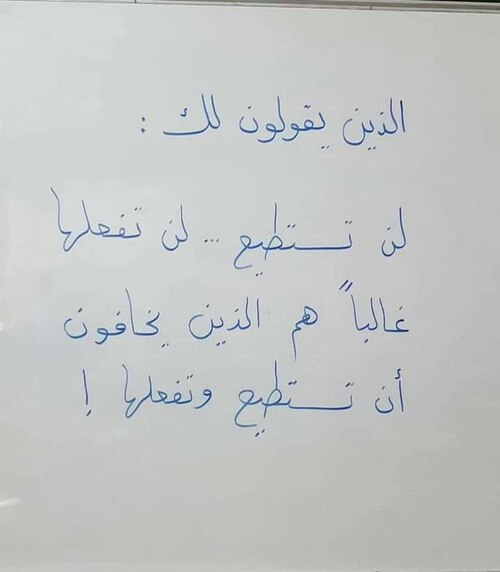 الذين يقولون لك :
لن تستطيع ... لن تفعلها
غالباً هم الذين يخافون
أن تستطيع وتفعلها !